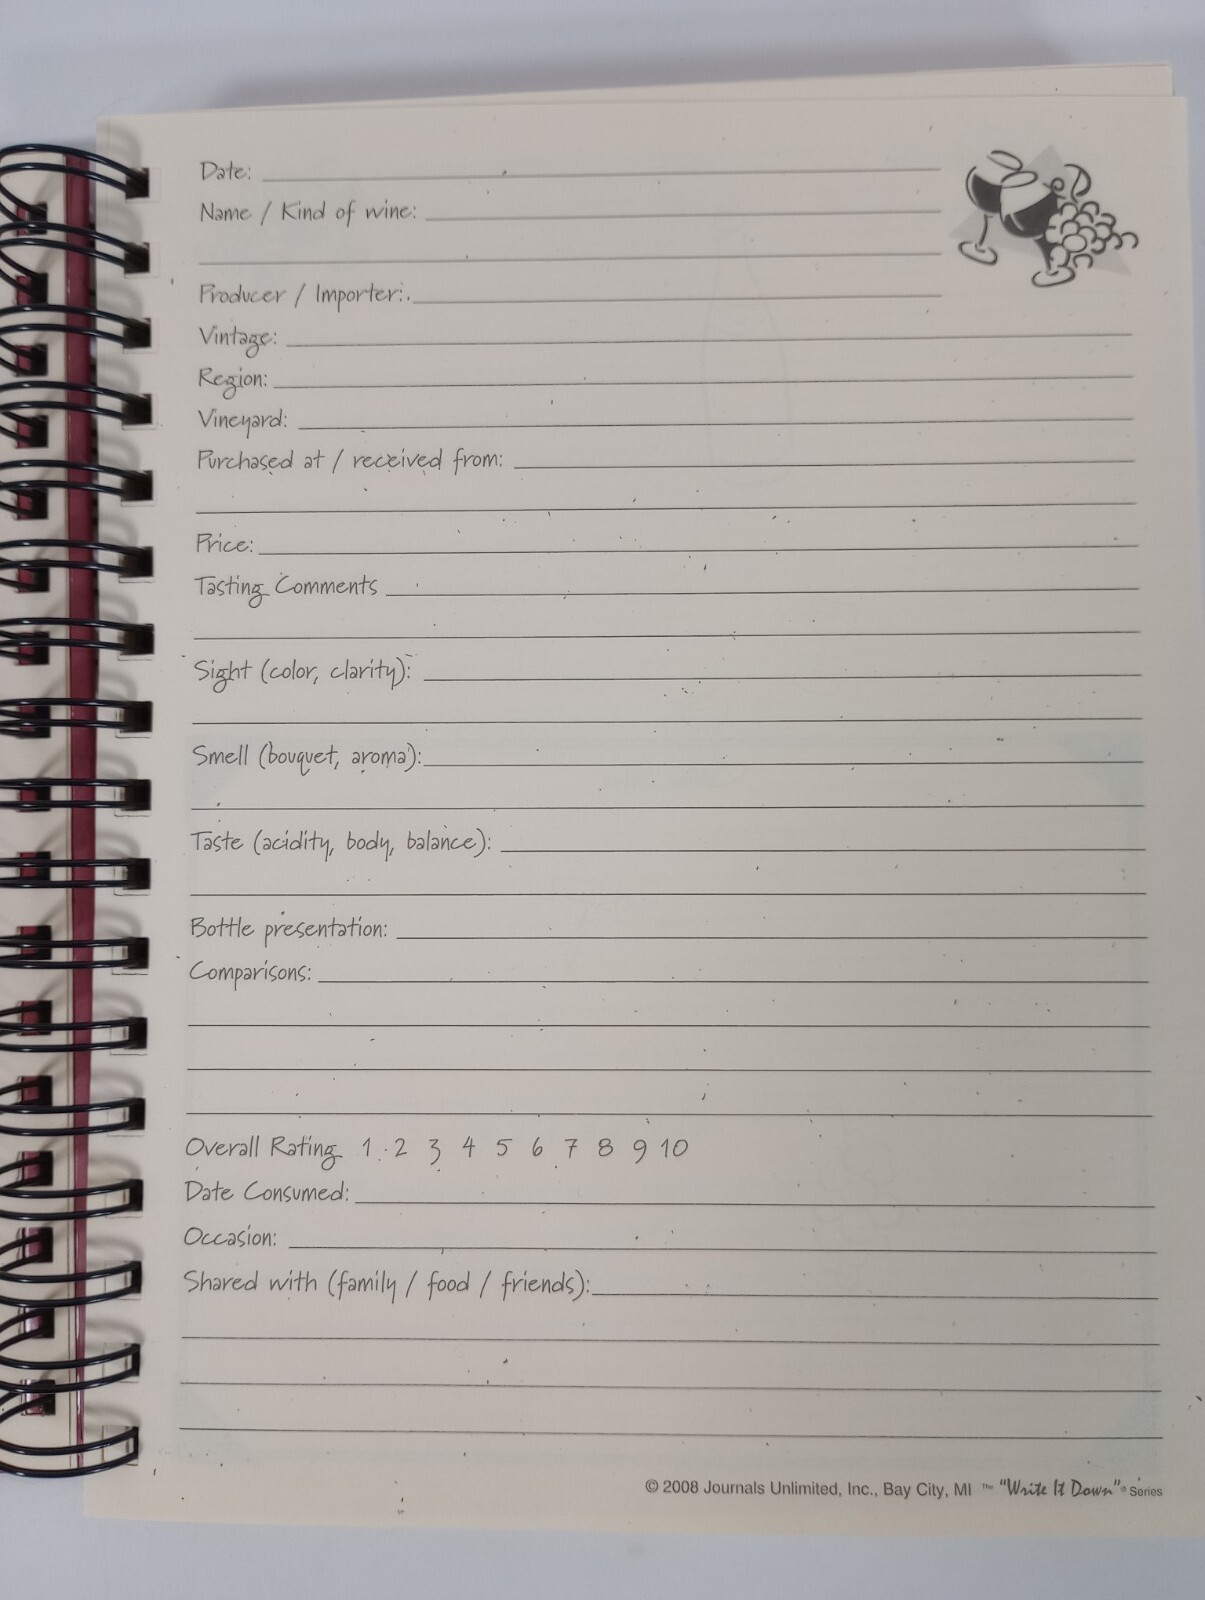 Date:
Name / Kind of wine:
Producer / Importer:
Vintage:
Region:
Vineyard:
Purchased at / received from:
Price:
Tasting Comments
Sight (color, clarity):
Smell (bouquet, aroma):
Taste (acidity, body, balance):
Bottle presentation:
Comparisons:
Overall Rating 1 2 3 4 5 6 7 8 9 10
Date Consumed:
Occasion:
Shared with (family / food / friends):
© 2008 Journals Unlimited, Inc., Bay City, MI ™ "Write It Down"® Series